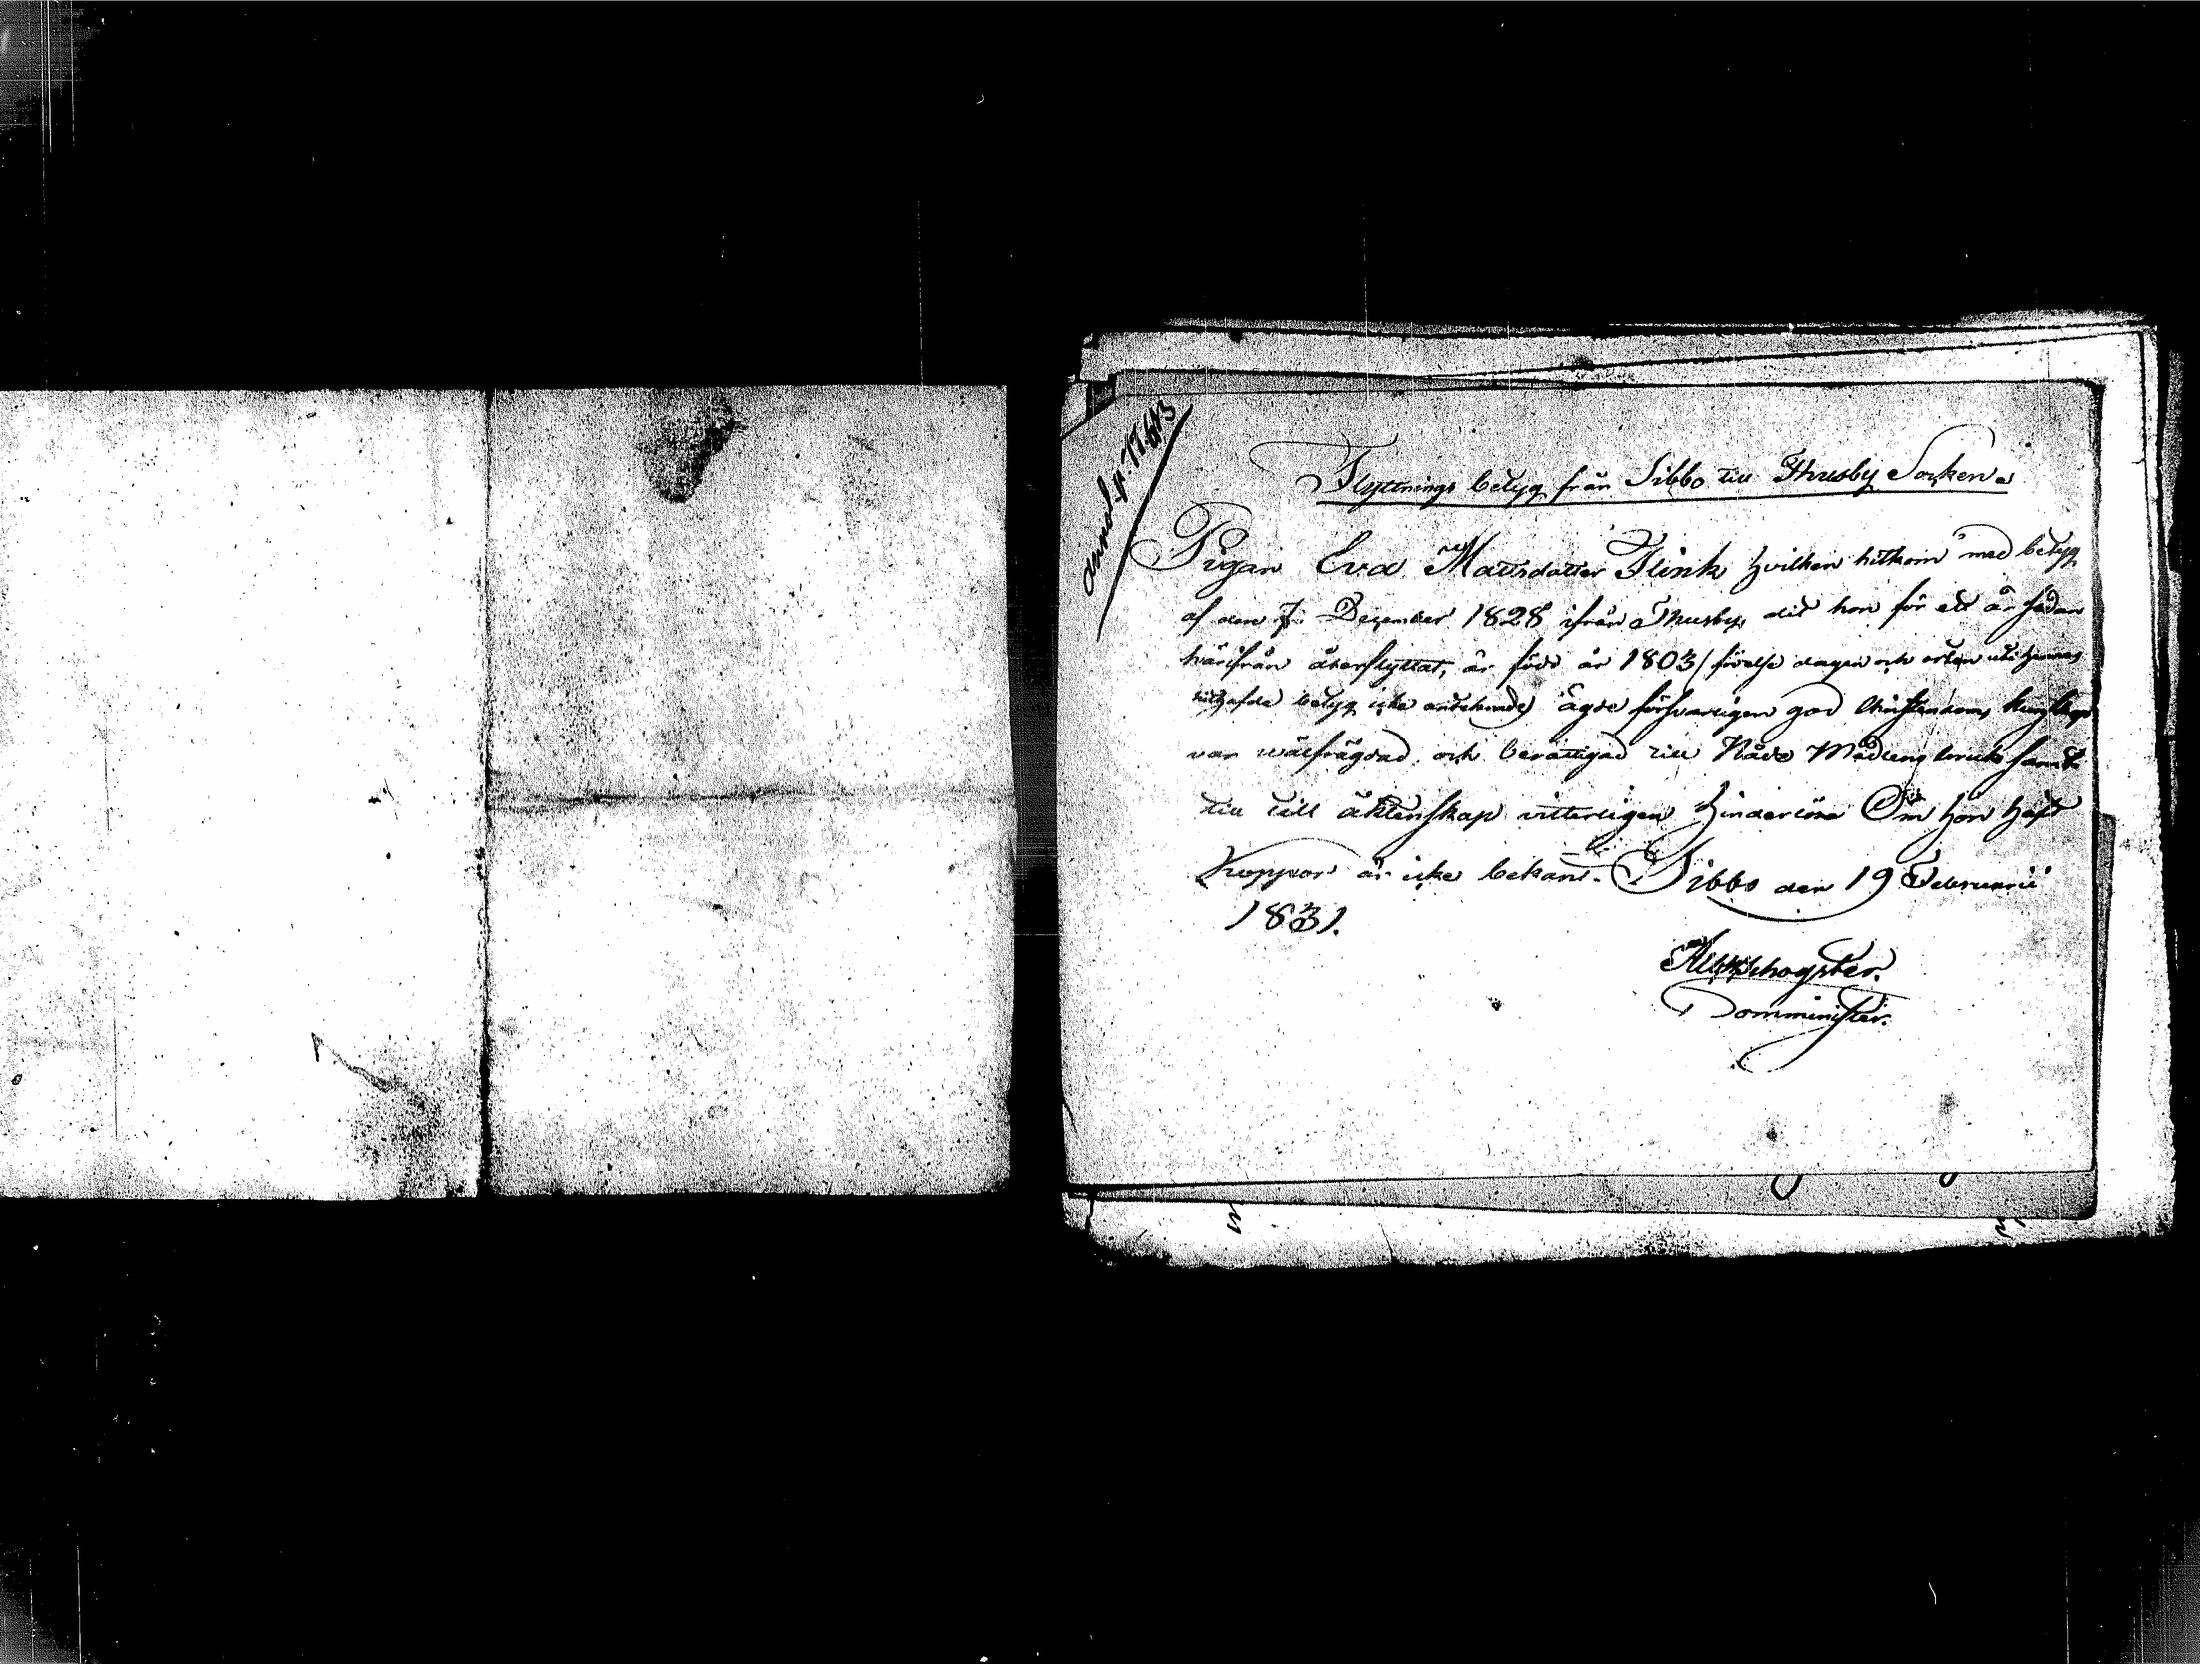 Flyttnings betyg från Sibbo till Thusby Socken.
Pigan Eva Mattsdotter Flink hvilken hitkom med betyg
af den 7. December 1828 ifrån Thusby, dit hon för ett år sedan
härifrån återflyttat, är född år 1803 (födelse dagen och orten uti hennes
hithafde betyg icke antecknade) ägde försvarligen god Christendoms kunskap
var wälfrägdad och berättigad till Nåde Medlens bruk samt
till till äktenskap vitterligen hinderlös. Om hon haft
Koppor är icke bekant. Sibbo den 19 Februarii
1831.
Domminister.